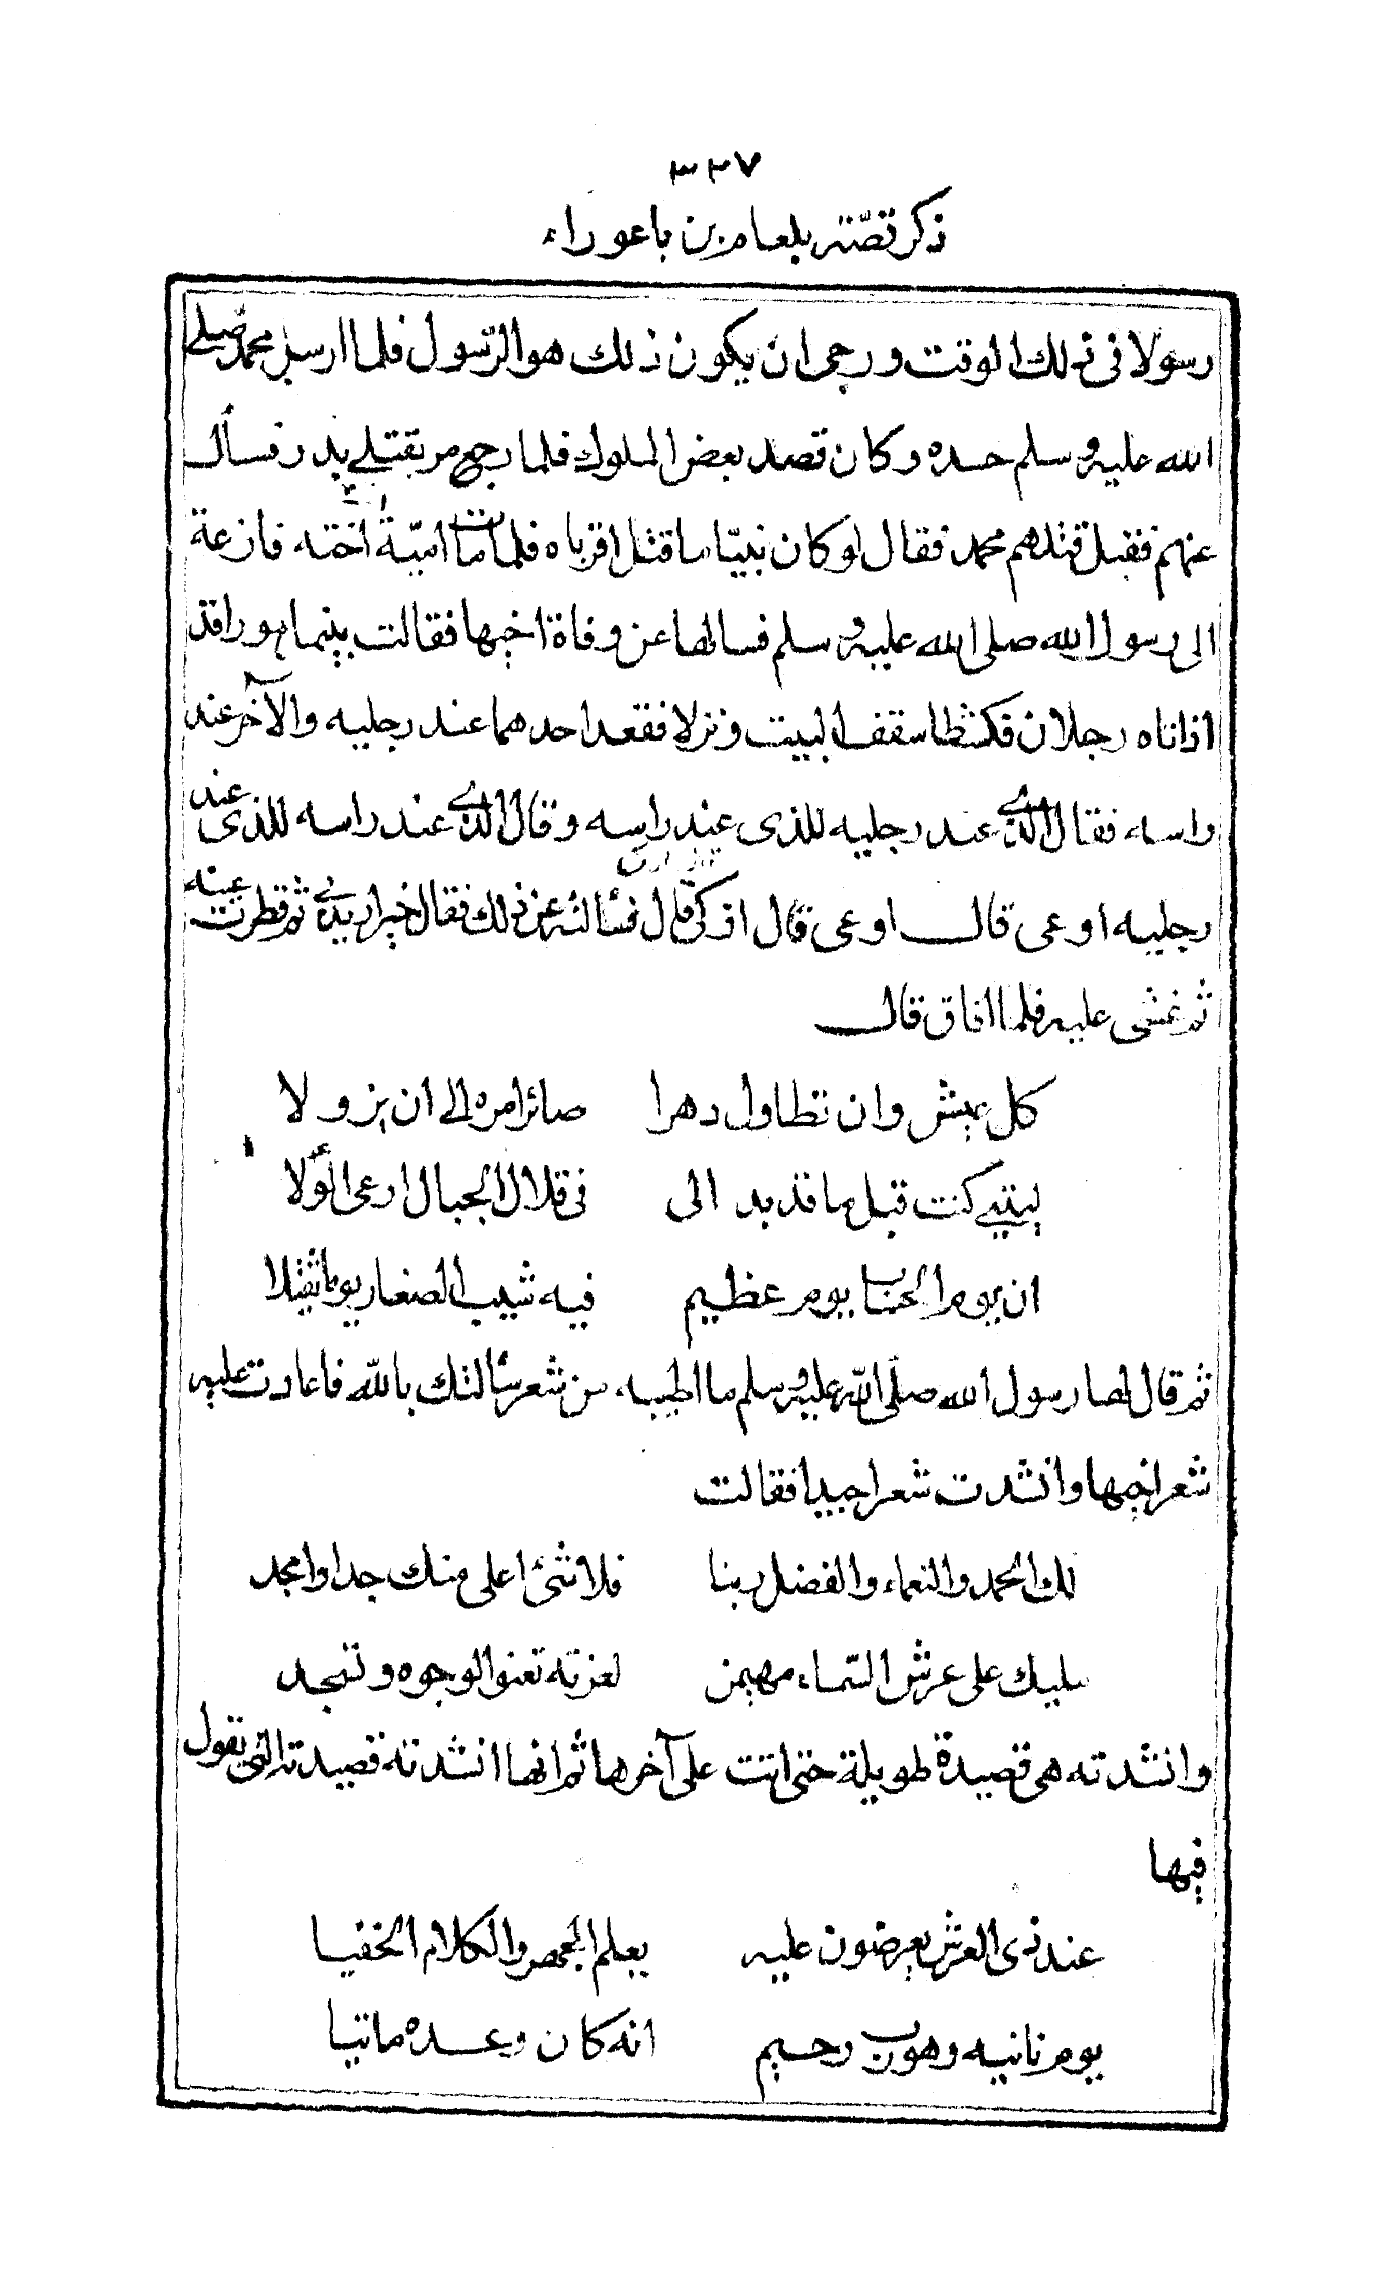 ٣٣٧
ذكر قصّة بلعام بن باعوراء
رسولا فى ذلك الوقت ورجى ان يكون ذلك هو الرّسول فلما ارسل محمد صلى
الله عليه وسلم حسده وكان قصد بعض الملوك فلما رجع مر بقتلى بدر فسأل
عنهم فقيل قتلهم محمد فقال لو كان نبيّا ما قتل اقرباه فلما مات اميّة اتت اخته فازعة
الى رسول الله صلى الله عليه وسلم فسالها عن وفاة اخيها فقالت بينما هو راقد
اذ اتاه رجلان فكشطا سقف البيت ونزلا فقعد احدهما عند رجليه والآخر عند
راسه فقال الذى عند رجليه للذى عند راسه وقال الذى عند راسه للذى عند
رجليه اوعى قال اوعى قال ازكى قال فسألته عن ذلك فقال خير اريد بى ثم قطرت عينه
ثم غشى عليه فلما افاق قال
كل عيش وان تطاول دهرا صائر امره الى ان يزولا
ليتنى كنت قبل ما قد بدا لى فى قلال الجبال ارعى الوَلا
ان يوم الحساب يوم عظيم فيه شيب الصغار يوما ثقيلا
ثم قال لها رسول الله صلّى الله عليه وسلم ما اطيبه من شعر سألتك بالله فاعادت عليه
شعر اخيها وانشدت شعرا جيدا فقالت
لك الحمد والنعماء والفضل ربنا فلا شئ اعلى منك جدا وامجد
مليك على عرش السّماء مهيمن لعزته تعنوا الوجوه وتسجد
وانشدته هى قصيدة طويلة حتى اتت على آخرها ثم انها انشدته قصيدته التى يقول
فيها
عند ذى العرش يعرضون عليه يعلم الجهر والكلام الخفيا
يوم ناتيه وهو رب رحيم انه كان وعده ماتيا